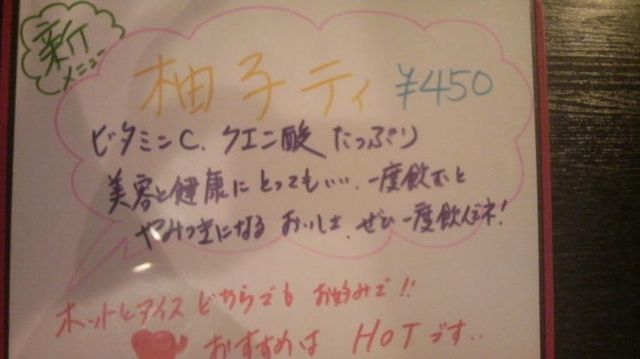 新
メニュー
柚子ティ ¥450
ビタミンC、クエン酸 たっぷり
美容と健康にとっても…、一度飲むと
やみつきになる おいしさ、ぜひ一度飲んでネ!
ホットとアイス どちらでも お好みで!!
おすすめは HOTです..